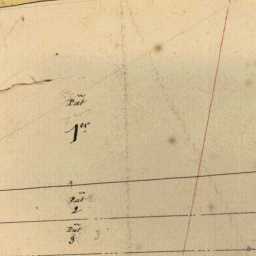 Pat
1er
Pat
2
Pat
3